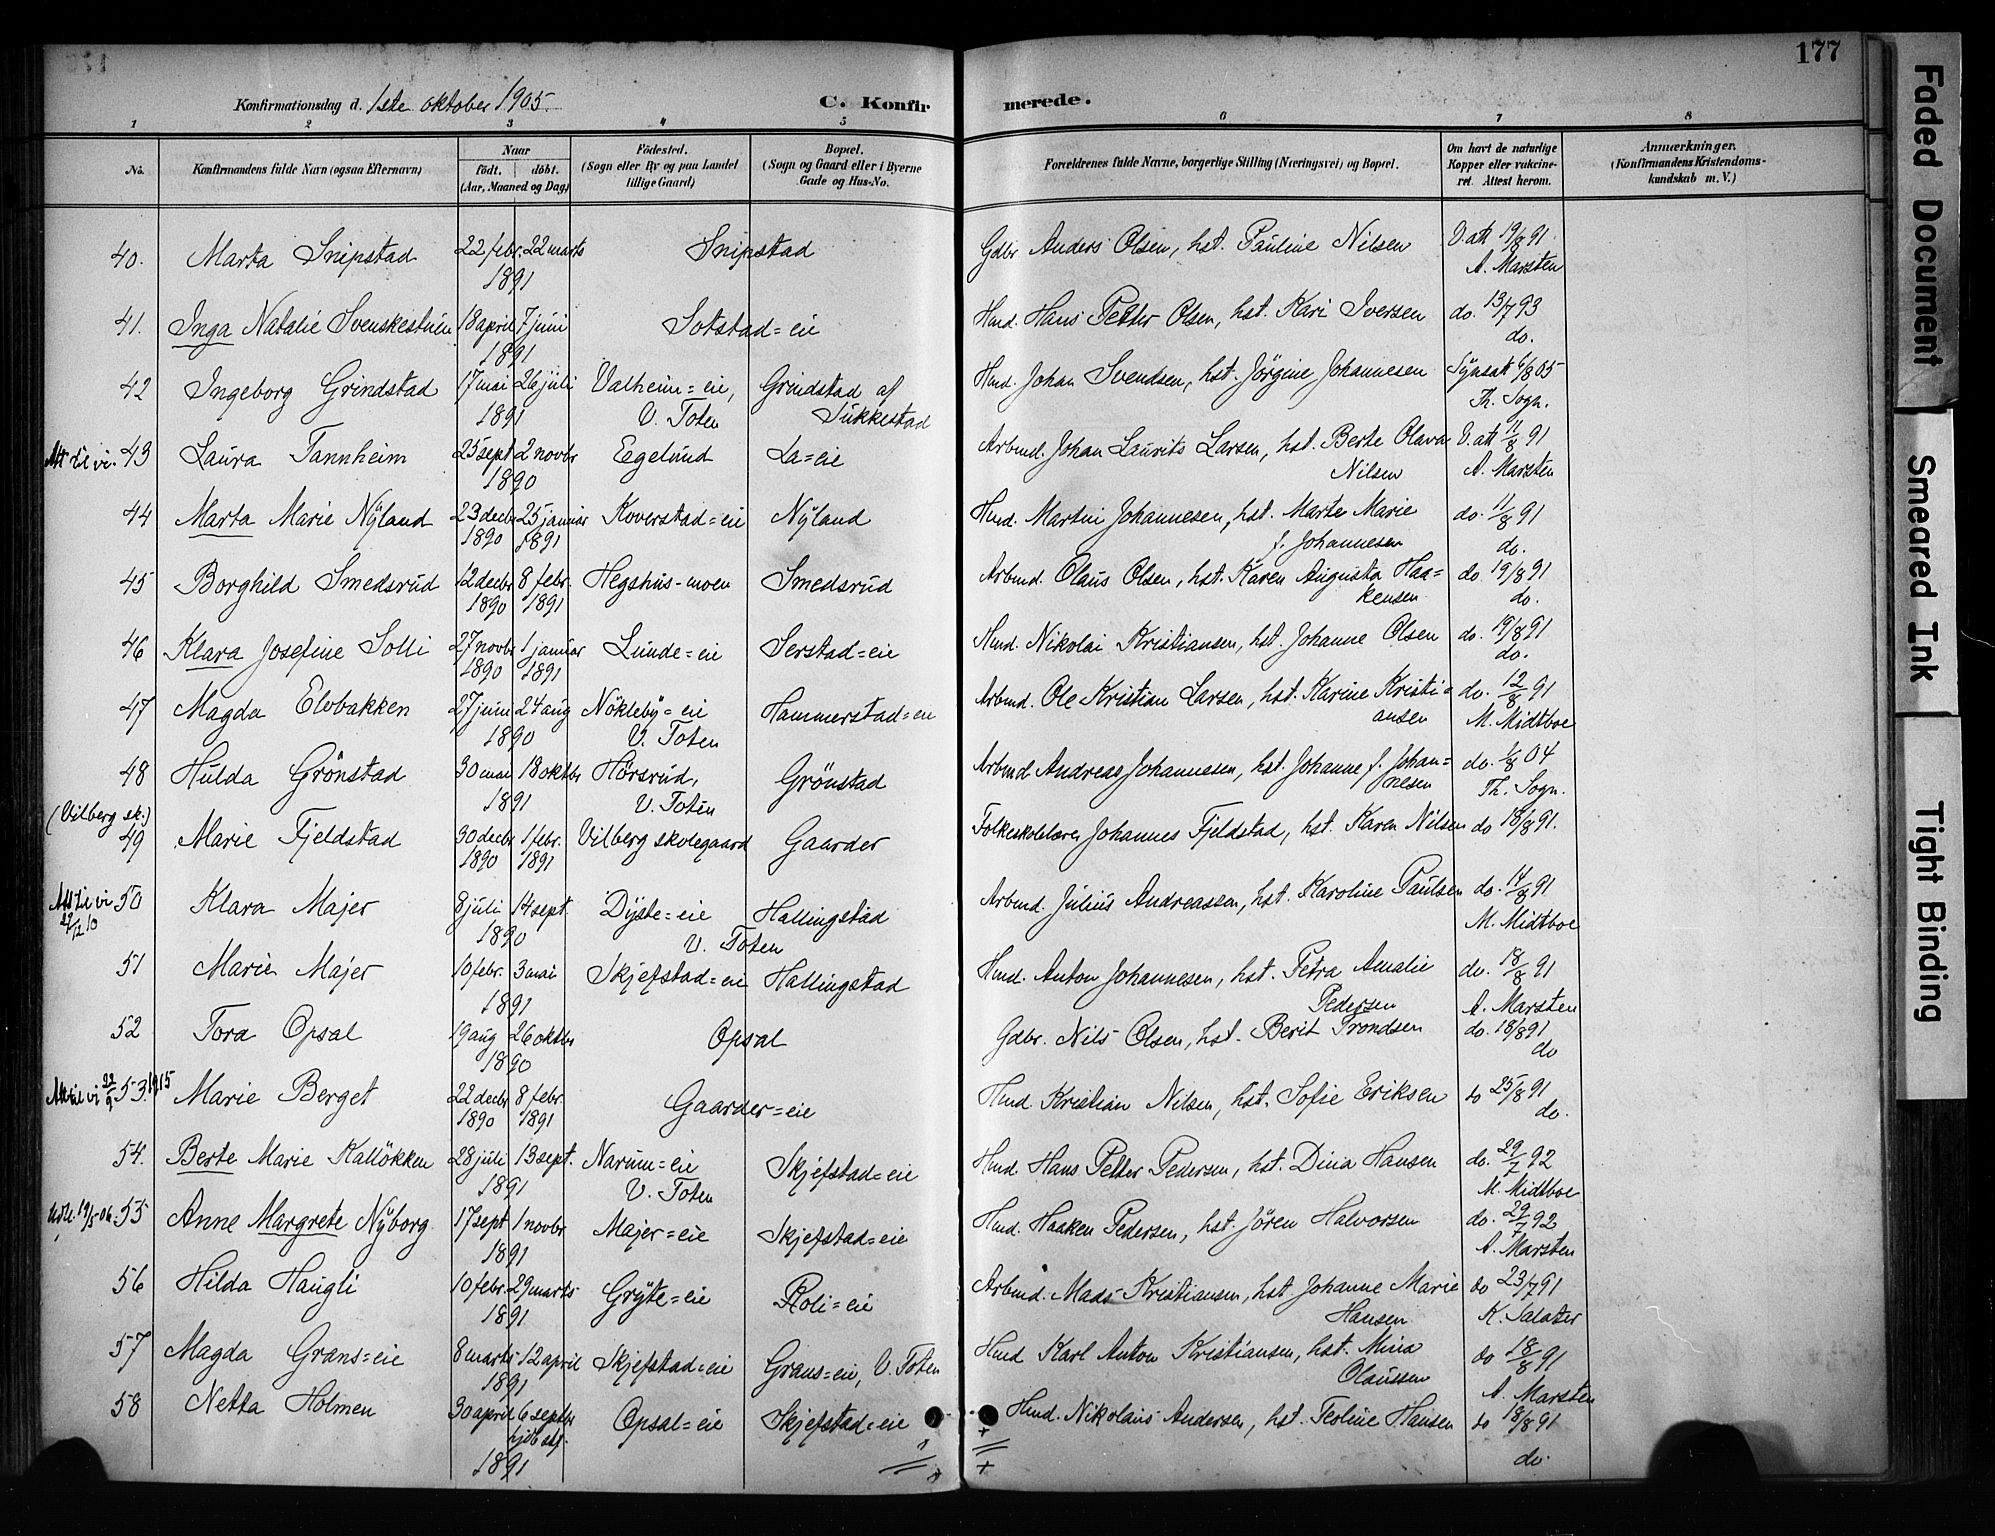 177
Konfirmationsdag d. 1ste oktober 1905.
C. Konfirmerede.
1 2 3 4 5 6 7 8
No. Konfirmandens fulde Navn (ogsaa Efternavn) Naar født. døbt. (Aar, Maaned og Dag) Fødested. (Sogn eller By og paa Landet tillige Gaard) Bopæl. (Sogn og Gaard eller i Byerne Gade og Hus-No. Forældrenes fulde Navne, borgerlige Stilling (Næringsvei) og Bopæl. Om havt de naturlige Kopper eller vakcineret. Attest herom. Anmærkninger. (Konfirmandens Kristendomskundskab m. V.)
40. Marta Snipstad 22 febr. 22 marts Snipstad Gdbr Anders Olsen, hst. Pauline Nilsen V. att 19/8 91
1891 A. Marsten
41. Inga Natalie Svenskestuen 18 april 7 juni Sotstad=eie Hmd. Hans Petter Olsen, hst. Kari Iversen do. 13/7 93
1891 do.
42 Ingeborg Grindstad 17 mai 26 juli Valheim=eie, Grindstad af Hmd. Johan Svendsen, hst. Jørgine Johannesen Synsatt 6/8 05
1891 V. Toten Sukkestad Th. Sogn.
Att til vi. 43 Laura Tannheim 25 sept 2 novbr Eegelund La=eie Arbmd. Johan Laurits Larsen, hst. Berte Olava V. att 11/8 91
1890 Nilsen A. Marsten
44 Marta Marie Nyland 23 decbr 25 januar Koverstad=eie Nyland Hmd. Martin Johannesen, hst. Marte Marie do. 11/8 91
1890 1891 f. Johannesen do.
45 Borghild Smedsrud 12 decbr 8 febr. Hegshus-moen Smedsrud Arbmd. Olaus Olsen, hst. Karen Augusta Haa= do. 19/8 91
1890 1891 kensen do.
46 Klara Josefine Solli 27 novbr 1 januar Lunde=eie Serstad=eie Hmd. Nikolai Kristiansen, hst. Johanne Olsen do. 19/8 91
1890 1891 do.
47 Magda Elvbakken 27 juni 24 aug Nøkleby=eie Hammerstad=eie Arbmd. Ole Kristian Larsen, hst. Karine Kristi= do. 12/8 91
1890 V. Toten ansen M. Midtboe
48 Hulda Grønstad 30 mai 18 oktbr Hørsrud, Grønstad Arbmd Andreas Johannesen, hst. Johanne f. Johan= do. 1/8 04
1891 V. Toten nesen Th. Sogn.
(Vilberg sk.)
49 Marie Fjeldstad 30 decbr 1 febr. Vilberg skolegaard Gaarder Folkeskolelærer Johannes Fjeldstad, hst. Karen Nilsen do 18/8 91.
1890 1891
Att til vi 50 Klara Majer 8 juli 14 sept. Dyste=eie Hallingstad Arbmd. Julius Andreassen, hst. Karoline Paulsen do. 14/8 91
1890 V. Toten M. Midtboe
51 Marie Majer 10 febr. 3 mai Skjefstad=eie Hallingstad Hmd. Anton Johannesen, hst. Petra Amalie do. 18/8 91
1891 Pedersen A. Marsten
52 Tora Opsal 19 aug 26 oktbr Opsal Gdbr. Nils Olsen, hst. Berit Trondsen do. 18/8 91
1890 do
Att til vi 22/9 1915 53. Marie Berget 22 decbr 8 febr. Gaarder=eie Hmd. Kristian Nilsen, hst. Sofie Eriksen do 25/8 91
1890 1891 do.
54. Berte Marie Kalløkken 28 juli 13 sept. Narum=eie Skjefstad=eie Hmd. Hans Petter Pedersen, hst. Dina Hansen do. 29/7 92
1891 V. Toten M. Midtboe
Udtl. 19/5 06. 55 Anne Margrete Nyborg 17 sept 1 novbr Majer=eie Skjefstad=eie Hmd. Haaken Pedersen, hst. Jøren Halvorsen do. 29/7 92
1891 A. Marsten
56 Hilda Haugli 10 febr. 29 marts Gryte=eie Roli=eie Arbmd. Mads Kristiansen, hst Johanne Marie do 23/7 91
1891 Hansen
57 Magda Grans=eie 8 marts 12 april Skjefstad=eie Grans=eie, V. Toten Hmd Karl Anton Kristiansen, hst. Mina do 18/8 91
1891 Olaussen A. Marsten
58 Netta Holmen 30 april 6 septbr Opsal=eie Skjefstad=eie Hmd. Nikolaus Andersen, hst. Teoline Hansen do 18/8 91
1891 do.
Faded Document
Smeared Ink
Tight Binding